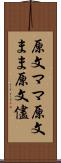 原文ママ原文まま原文儘